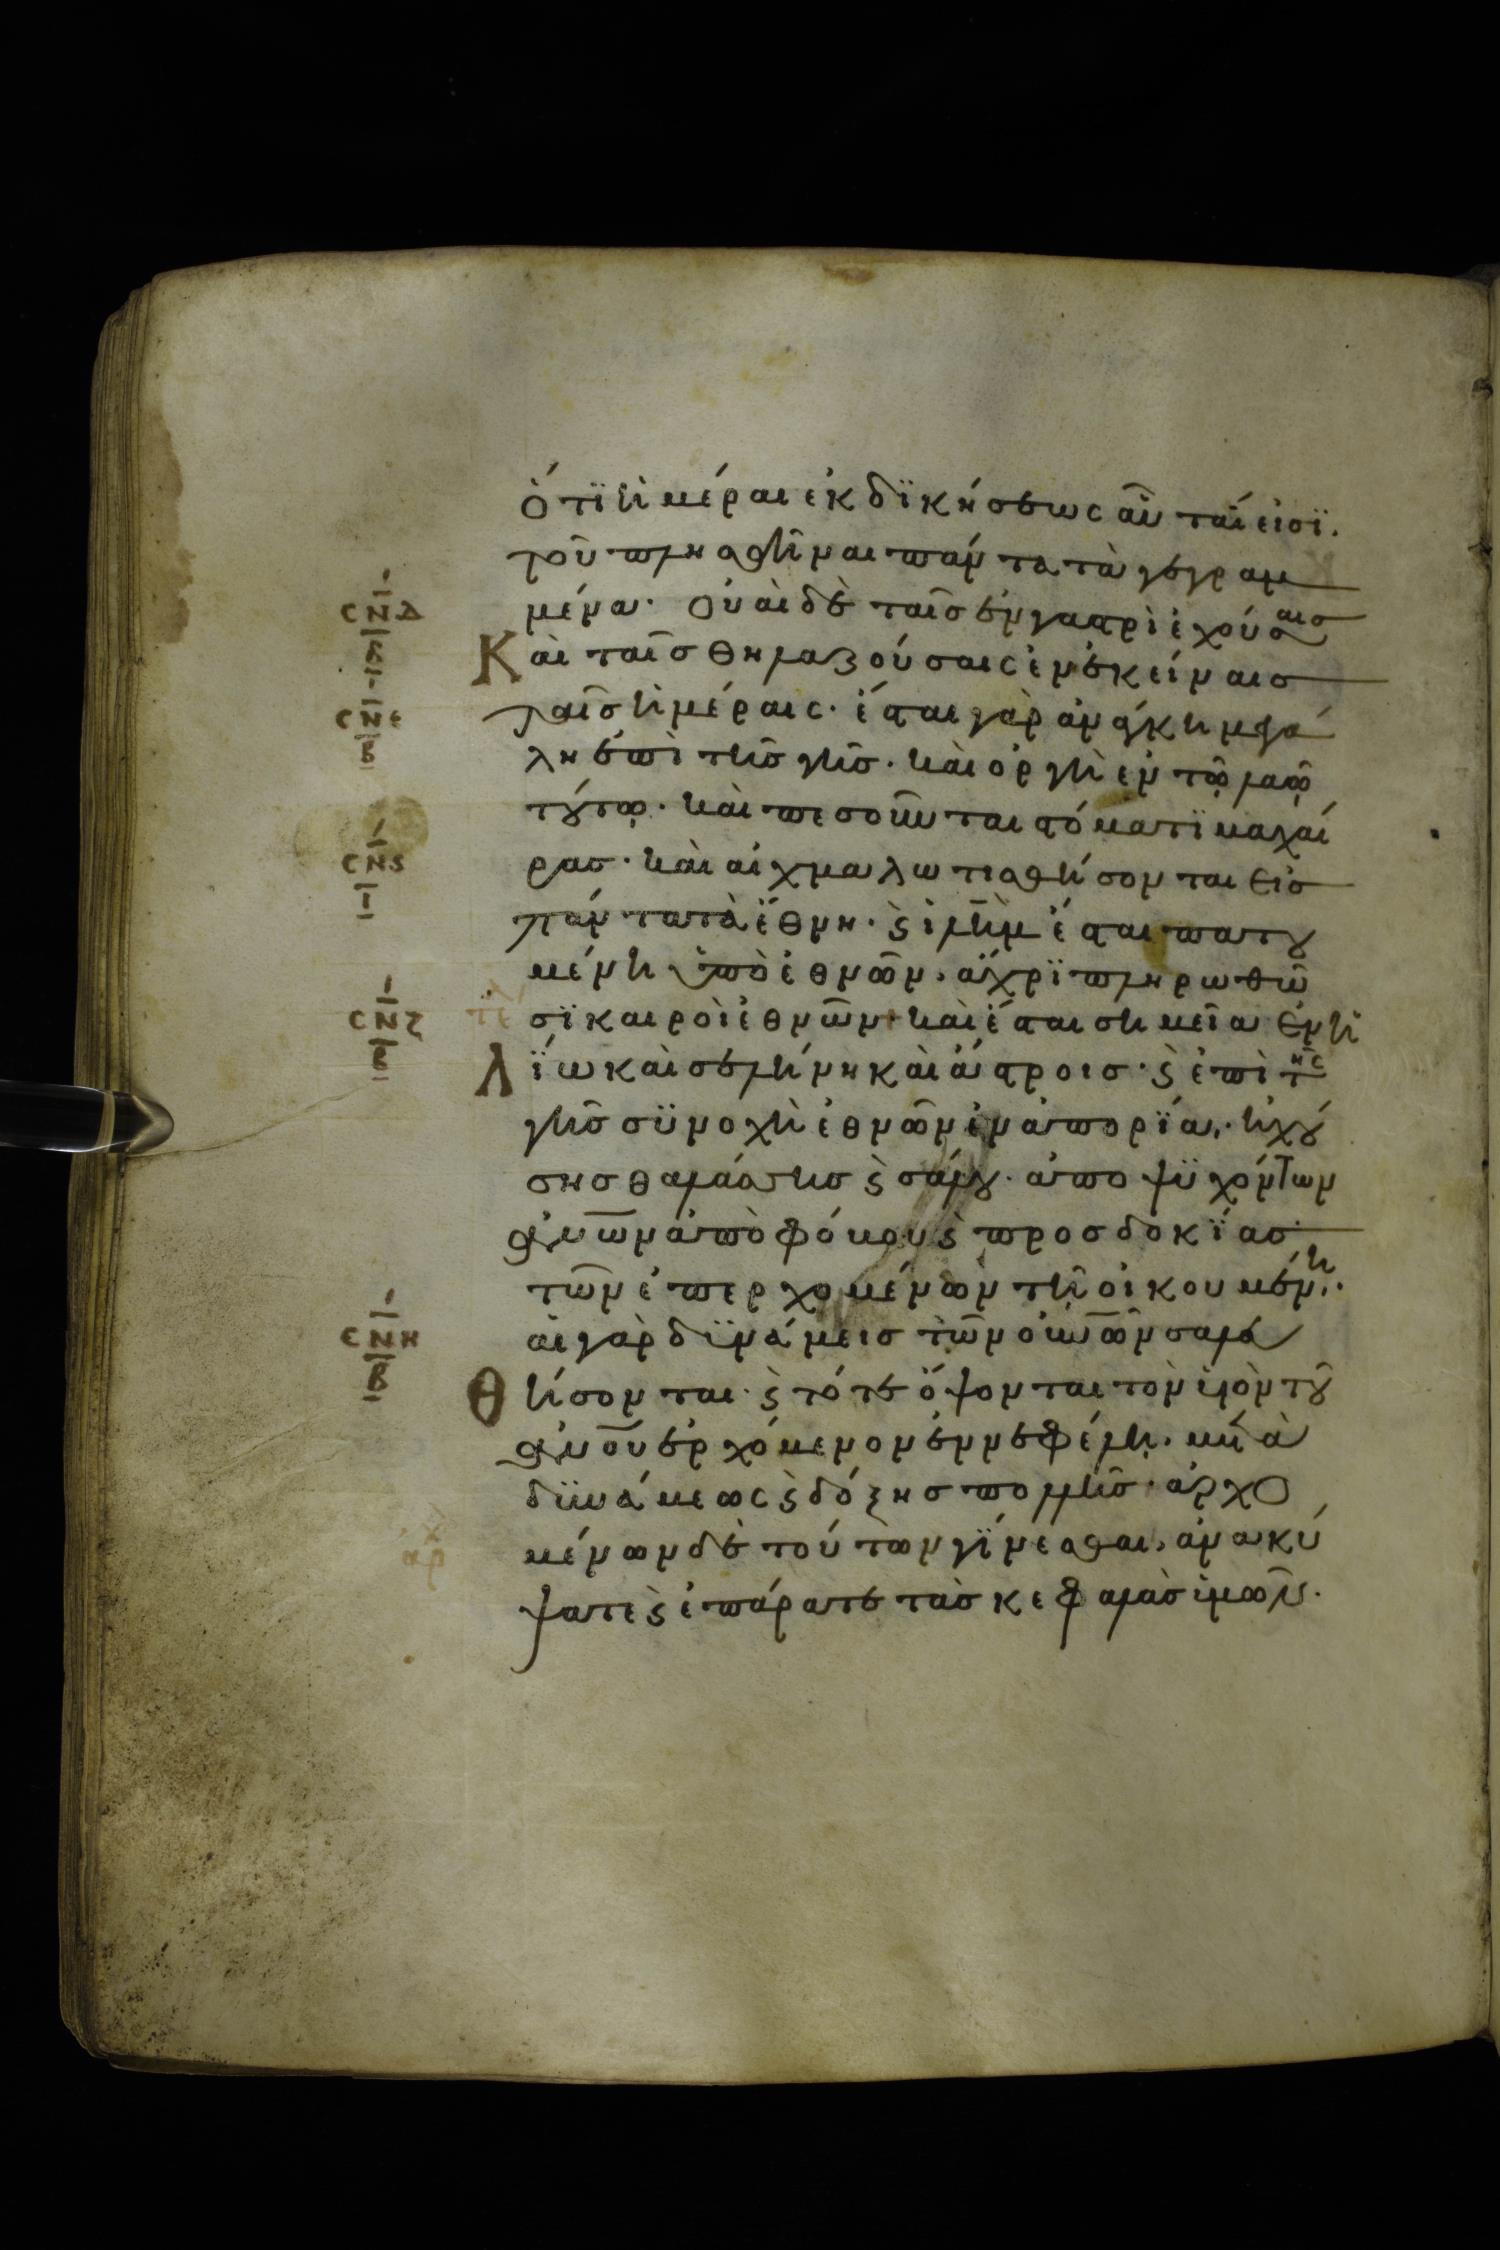 ὅτι ἡμέραι ἐκδϊκήσεως αὗταί εἰσϊ.
τοῦ πλησθῆναι πάντα τὰ γεγραμ
μένα· οὐαὶ δὲ ταῖς ἐν γαστρὶ ἐχούσαις
Καὶ ταῖς θηλαζούσαις ἐν ἐκείναις
ταῖς ἡμέραις· ἔσται γὰρ ἀνάγκη μεγά
λη ἐπὶ τῆς γῆς· καὶ ὀργὴ ἐν τῷ λαῷ
τούτῳ· καὶ πεσοῦνται στόματϊ μαχαί
ρας· καὶ αἰχμαλωτισθήσονται εἰς
πάντα τὰ ἔθνη· ϛ ἱλὴμ ἔσται πατου
μένη ὑπὸ ἐθνῶν· ἄχρϊ πληρωθῶ
σϊ καιροὶ ἐθνῶν· καὶ ἔσται σημεῖα ἐν ἡ
Λίω καὶ σελήνη καὶ ἄστροις· ϛ ἐπὶ τῆς
γῆς συνοχὴ ἐθνῶν ἐν ἀπορϊα· ἠχού
σης θαλάσσης ϛ σάλου· ἀποψυχόντων
ἀνων ἀπὸ φόβου ϛ προσδοκίας
τῶν ἐπερχομένων τῆ οἰκουμένη·
αἱ γὰρ δυνάμεις τῶν οὐνῶν σαλε
Θήσονται· ϛ τότε ὄψονται τὸν υἱὸν τοῦ
ἀνου ἐρχόμενον ἐν νεφέλη· μετὰ
δυνάμεως ϛ δόξης πολλῆς· ἀρχο
μένων δὲ τούτων γίνεσθαι, ἀνακύ
ψατε ϛ ἐπάρατε τὰς κεφαλὰς ὑμῶν·
ϹΝΔ
Β
ϹΝΕ
Β
ϹΝϚ
Ι
ϹΝΖ
Β
τε
ϹΝΗ
Β
αρχ